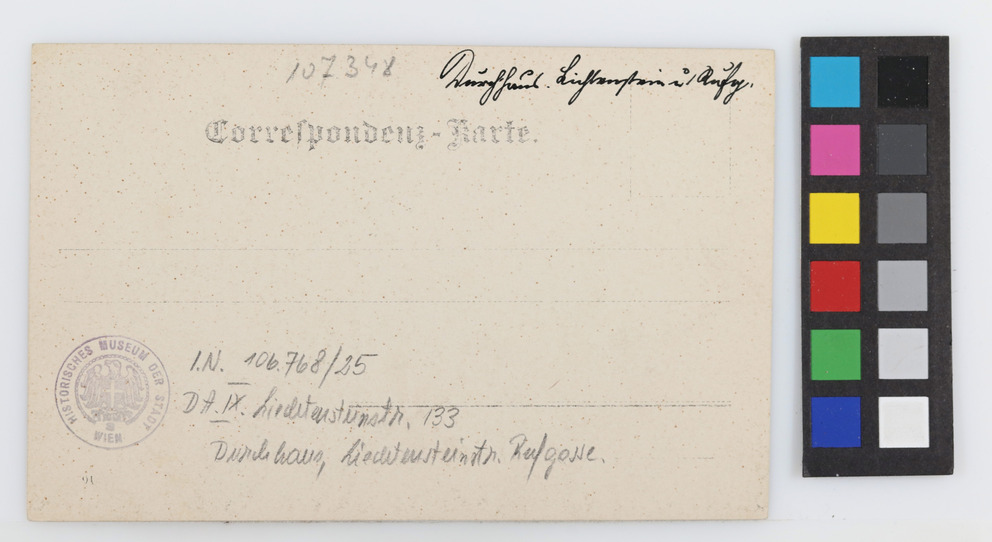 107348
Durchhaus. Lichtenstein u.
Correspondenz-Karte.
I.N. 106.768/25
DA IX. Liechtensteinstr. 133
Durchhaus, Liechtensteinstr. Rufgasse.
HISTORISCHES MUSEUM DER STADT
WIEN